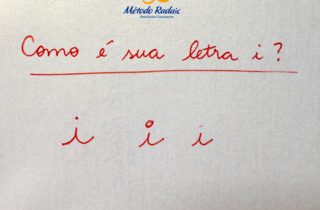 Método Radaic
Como é sua letra i?
i i i